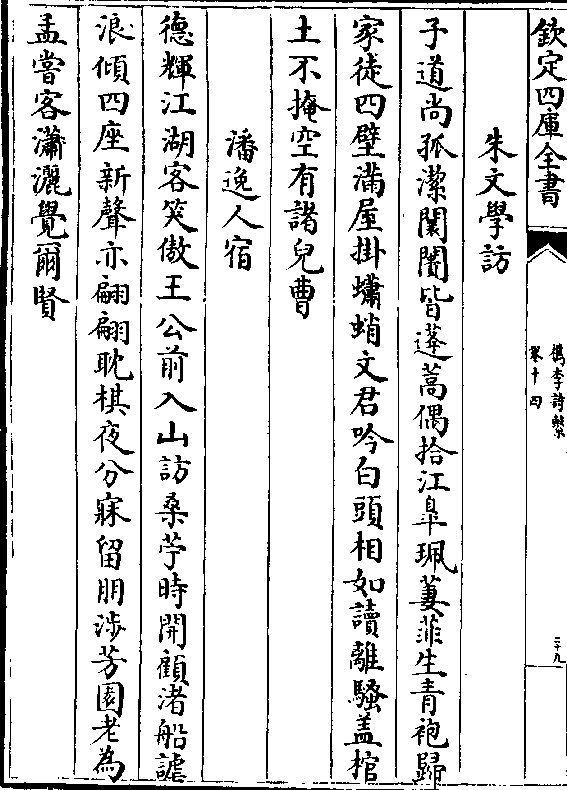 欽定四庫全書
檇李詩繫
卷十四
二十九
朱文學訪
子道尚孤潔闤闠皆蓬蒿偶拾江臯珮萋菲生青袍歸
家徒四壁滿屋掛蠨蛸文君吟白頭相如讀離騷盖棺
土不掩空有諸兒曹
潘逸人宿
德輝江湖客笑傲王公前入山訪桑苧時開顧渚船謔
浪傾四座新聲亦翩翩耽棋夜分寐留朋涉芳園老為
孟嘗客瀟灑覺爾賢